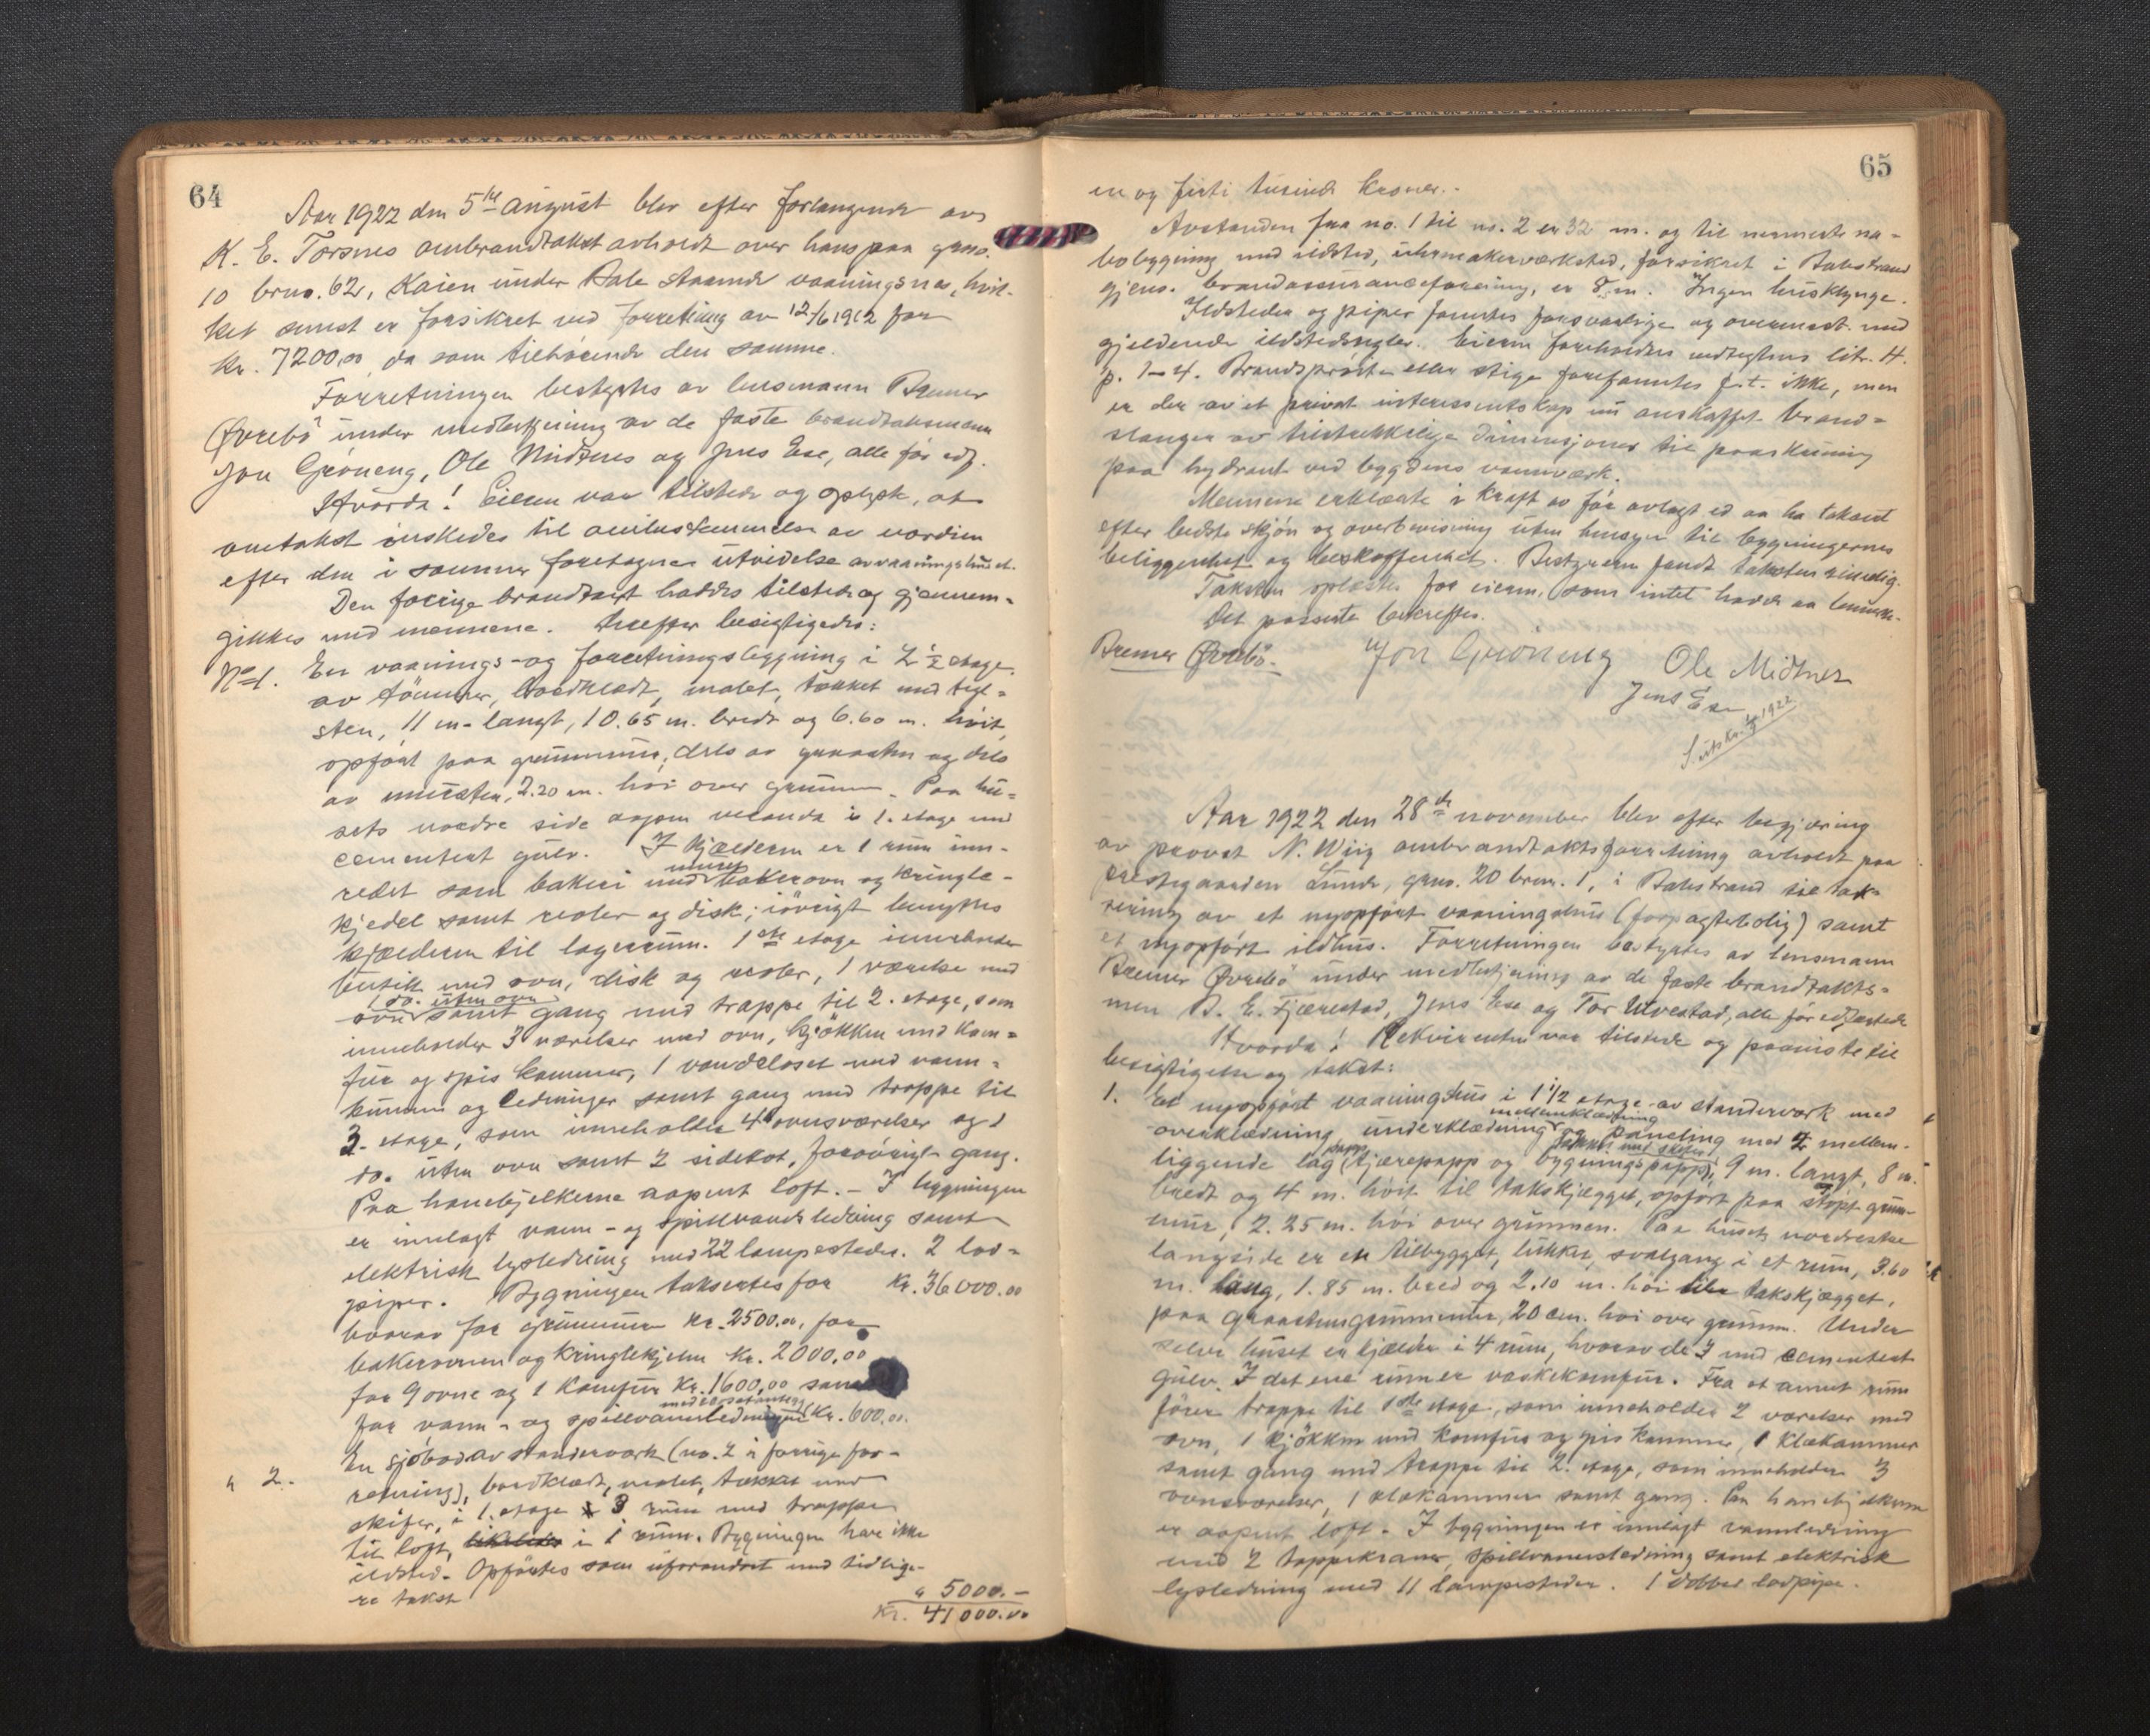 64
Aar 1922 den 5te august blev efter forlangende av
K. E. Torsnes ombrandtakst avholdt over hans paa gnno.
10 brno. 62, Kaien under Dale staaende vaaningshus, hvil-
ket senest er forsikret ved forretning av 12/6 1912 for
kr. 7200,00 da som tilhørende den samme.
Forretningen bestyrtes av lensmann Bremer
Øvrebö under medbetjening av de faste brandtaksmenn
Jon Gröneng, Ole Midtnes og Jens Ese, alle för edf.
Hvorda! Eieren var tilstede og oplyste, at
omtakst önskedes til avilustemmelse av verdien
efter den i sommer foretagne utvidelse av vaaningshuset.
Den forrige brandtakst haddes tilstede og gjennem-
gikkes med mennene. Derefter besigtigedes:
No 1. En vaanings- og forretningsbygning i 2 1/2 etage
av tömmer, bordklædt, malet, tækket med tegl-
sten, 11 m. langt, 10.65 m. bredt og 6.60 m. höit,
opfört paa grunnmur, dels av graasten og dels
av mursten, 2.20 m. höi over grunnen. Paa hu-
sets nordre side aapen veranda i 1. etage med
cementert gulv. I kjælderen er 1 rum inn-
redet som bakeri med muret bakerovn og kringle-
kjedel samt reoler og disk; iövrigt benyttes
kjælderen til lagerrum. 1ste etage inneholder
butik med ovn, disk og reoler, 1 værelse med
ovn 1 do. uten ovn samt gang med trappe til 2. etage, som
inneholder 3 værelser med ovn, kjökken med kom-
fur og spiskammer, 1 vandcloset med vann-
kummer og ledninger samt gang med trappe til
3. etage, som inneholder 4 ovnsværelser og 1
do. uten ovn samt 2 sidekot, foröörigt gang.
Paa hanebjelkerne aapent loft. - I bygningen
er innlagt vann- og spillvandsledning samt
elektrisk lysledning med 22 lampesteder. 2 lod-
piper. Bygningen takseres for kr. 36000.00
hvorav for grunnmur kr. 2500.00, for
bakerovnen og kringlekjelen kr. 2000,00
for 9 ovne og 1 komfur kr. 1600,00 samt
for vann- og spillvannsledningene (kr. 600.00.
" 2. En sjöbod av standerværk (no. 2 i forrige for-
retning), bordklædt, malet, tækket med
skifer, i 1. etage 3 rum med trappe
til loft, i 1 rum. Bygningen har ikke
ildsted. Opförtes som uforandret med tidlige-
re takst " 5000.-
Kr. 41000.00
65
en og firti tusinde kroner.-
Avstanden fra no. 1 til no. 2 er 32 m. og til nærmeste na-
bobygning med ildsted, uhrmakerværksted, forsikret i Balestrand
gjens. brandassuranceforening, er 8 m. Ingen husklynge.
Ildsteder og piper fantes forsvarlige og overensst. med
gjeldende ildstedsregler. Eieren foreholdtes vedtegtens litr. H.
p. 1-4. Brandspröite eller stige forefantes f.t. ikke, men
er der av et privat interessentskap nu anskaffet brand-
slanger av tilstrekkelige dimensjoner til paaskruing
paa hydrant ved bygdens vannværk.
Mennene erklærte i kraft av för avlagt ed aa ha taksert
efter bedste skjön og overbevisning uten hensyn til bygningernes
beliggenhet og beskaffenhet. Bestyreren fandt taksten rimelig.
Taksten oplæstes for eieren, som intet hadde aa bemerke.
Det passerte bekreftes.
Bremer Øvrebö. Jon Gröneng Ole Midtnes
Jens Ese
Aar 1922 den 28de november blev efter begjæring
av provst N. Wiig ombrandtakstforretning avholdt paa
prestegaarden Lunde, gnno. 20 brno. 1, i Balestrand til tak-
sering av et nyopfört vaaningshus (forpagterbolig) samt
et nyopfört ildhus. Forretningen bestyrtes av lensmann
Bremer Øvrebö under medbetjening av de faste brandtakts-
men B. E. Fjærestad, Jens Ese og Tor Ulvestad, alle för edfæstede
Hvorda! Rekvirenten var tilstede og paaviste til
besigtigelse og takst:
1. Et nyopfört vaaningshus i 1 1/2 etage av standerværk med
overklædning, underklædning mellemklædning og paneling med 2 mellem-
liggende lag papp (tjærepapp og bygningspapp), tækket med skifer, 9 m. langt, 8 m.
bredt og 4 m. höit til takskjægget, opfört paa stöpt grunn-
mur, 2.25 m. höi over grunnen. Paa husets nordvestre
langside er en tilbygget, lukket svalgang i et rum, 3.60
m. lang, 1.85 m. bred og 2.10 m. höi til takskjægget,
paa graastensgrunnmur, 20 cm. höi over grunnen. Under
selve huset er kjælder i 4 rum, hvorav de 3 med cementert
gulv. I det ene rum er vaskekomfur. Fra et annet rum
förer trappe til 1ste etage, som inneholder 2 værelser med
ovn, 1 kjökken med komfur og spiskammer, 1 klækammer
samt gang med trappe til 2. etage, som inneholder 3
ovnsværelser, 1 klækammer samt gang. Paa hanebjelkerne
er aapent loft. - I bygningen er innlagt vannledning
med 2 tappekraner, spillvannsledning samt elektrisk
lysledning med 11 lampesteder. 1 dobbel lodpipe.